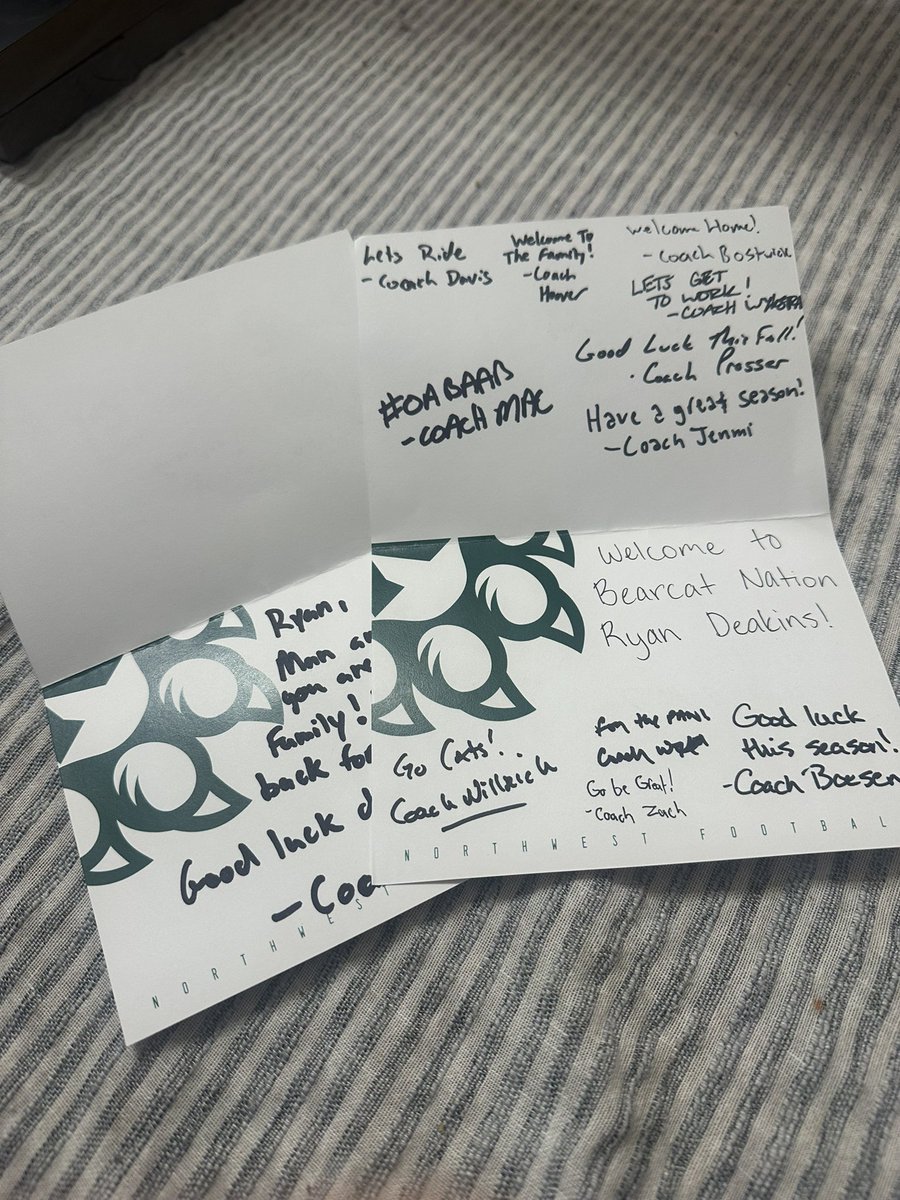 Lets Ride
- Coach Davis
Welcome To
The Family!
- Coach
Hoover
Welcome Home!
- Coach Bostwick
LETS GET
TO WORK!
- COACH
Good Luck This Fall!
- Coach Prosser
#OABAAB
- COACH MAC
Have a great season!
- Coach Jenmi
Welcome to
Bearcat Nation
Ryan Deakins!
Go Cats!
Coach Willrich
for the
Coach
Go be Great!
- Coach Zach
Good luck
this season!
- Coach Boesen
NORTHWEST FOOTBAL
Ryan,
Man
you are
Family!
back for
Good luck
- Coa
NORTHWEST